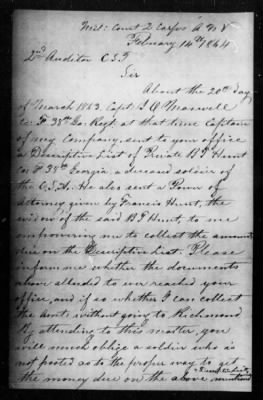 Mil: Court 2 Corps A N V
February 14th 1864
2nd Auditor C.S.T
Sir
About the 20th day
of March 1863. Capt. J. O. Maxwell
Co. F 38th Ga. Regt. at that time Captain
of my Company, sent to your office
a Descriptive List of Private B J Hunt
Co. F 38th Georgia, a deceased soldier of
the C.S.A. He also sent a Power of
Attorney given by Francis Hunt, the
widow of the said B J Hunt, to me
empowering me to collect the amount
due on the Descriptive List. Please
inform me whether the documents
above alluded to ever reached your
office, and if so whether I can collect
the amt. without going to Richmond
By attending to this matter, you
will much oblige a soldier who is
not posted as to the proper way to get
the money due on the above mentioned